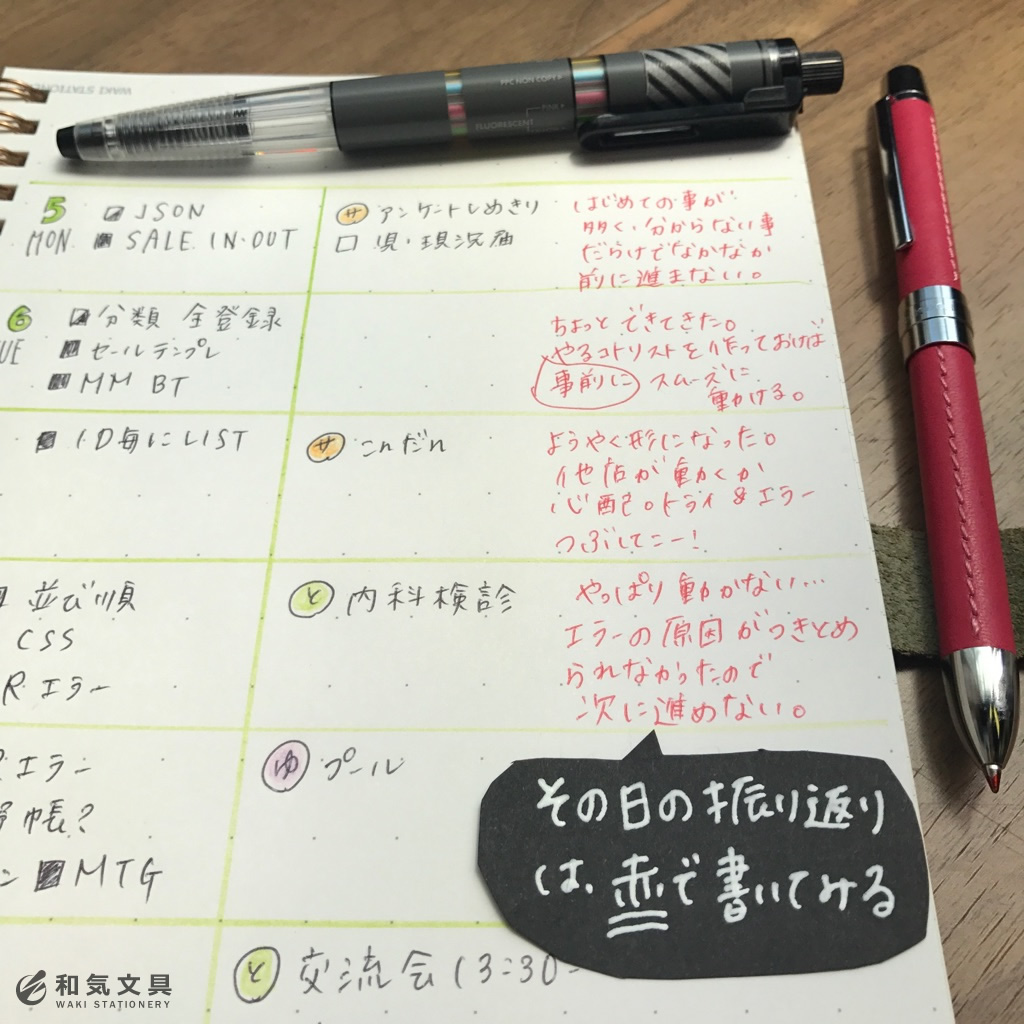 WAKI STATION
PPC NON COPY
PINK
FLUORESCENT
5
MON.
JSON
SALE IN・OUT
サ アンケートしめきり
児・現況届
はじめての事が
多く、分からない事
だらけでなかなか
前に進まない。
6
UE
分類 全登録
セールテンプレ
MM BT
ちょっとできてきた。
やるコトリストを作っておけば
事前に スムーズに
動かける。
ID毎にLIST
サ こんだん
ようやく形になった。
他店が動くか
心配。トライ&エラー
つぶしてこー!
並び順
CSS
R. エラー
と 内科検診
やっぱり動かない…
エラーの原因がつきとめ
られなかったので
次に進めない。
エラー
帳?
MTG
ゆ プール
その日の振り返り
は、赤で書いてみる
と 交流会 13:30-
和気文具
WAKI STATIONERY